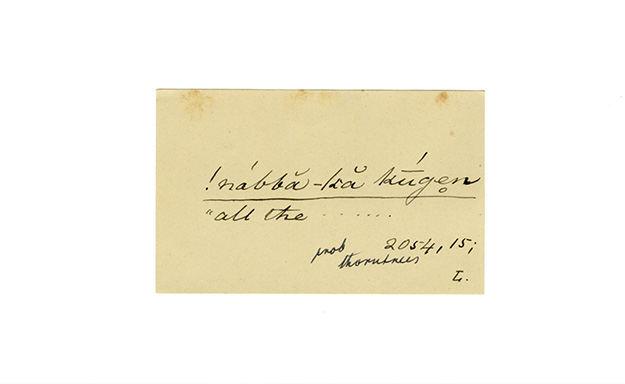 !nábbă-kă kúgẹn
"all the .......
prob 2054, 15;
thorntrees
L.